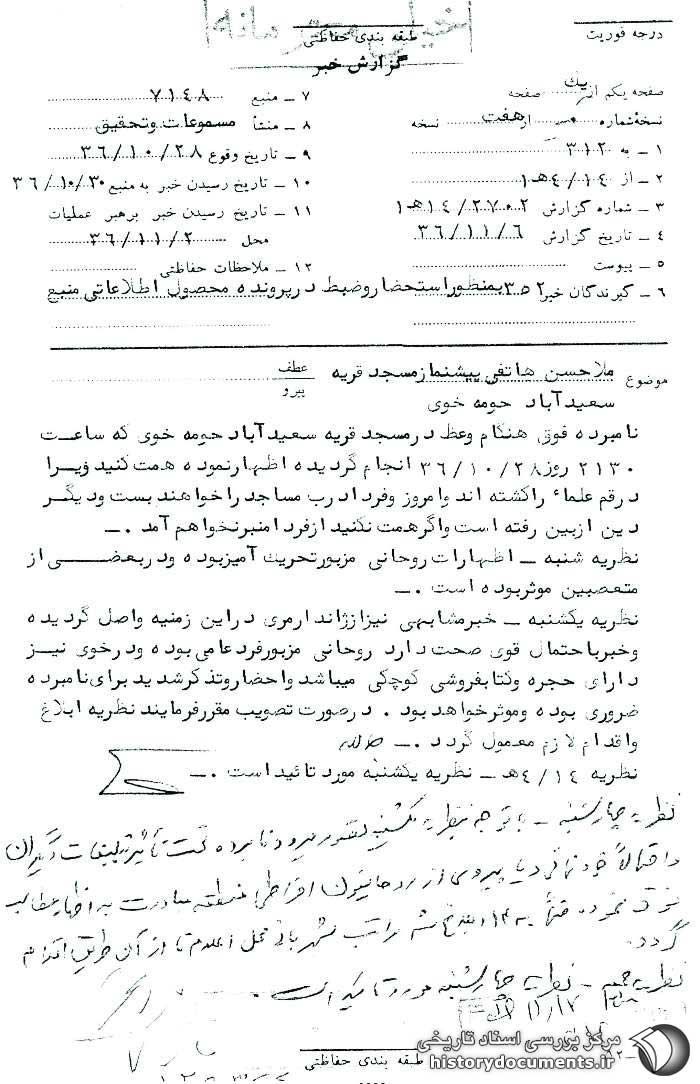 خیلی محرمانه
درجه فوریت
طبقه بندی حفاظتی
گزارش خبر
صفحه یکم از یك صفحه
نسخهٔ شماره از هفت نسخه
۱ ـ به ۳۱۲
۲ ـ از ۱۴/۴هـ۱
۳ ـ شماره گزارش ۱۴/۲۷۰۲هـ۱
۴ ـ تاریخ گزارش ۳۶/۱۱/۶
۵ ـ پیوست
۶ ـ گیرندگان خبر ۳۵۲ بمنظور استحضار وضبط در پرونده محصول اطلاعاتی منبع
۷ ـ منبع ۷۱۴۸
۸ ـ منشأ مسموعات وتحقیق
۹ ـ تاریخ وقوع ۳۶/۱۰/۲۸
۱۰ ـ تاریخ رسیدن خبر به منبع ۳۶/۱۰/۳۰
۱۱ ـ تاریخ رسیدن خبر برهبر عملیات
محل ۳۶/۱۱/۲
۱۲ ـ ملاحظات حفاظتی
موضوع ملاحسن هاتفی پیشنماز مسجد قریه
سعیدآباد حومه خوی
عطف
پیرو
نامبرده فوق هنگام وعظ درمسجد قریه سعیدآباد حومه خوی که ساعت
۲۱۳۰ روز ۳۶/۱۰/۲۸ انجام گردیده اظهارنموده همت کنید وزیرا
درقم علماء راکشته اند وامروز وفردا درب مساجد راخواهند بست ودیگر
دین ازبین رفته است واگرهمت نکنید ازفردا منبرنخواهم آمد . ـ
نظریه شنبه ـ اظهارات روحانی مزبورتحریك آمیزبوده ودربعضی از
متعصبین موثربوده است . ـ
نظریه یکشنبه ـ خبرمشابهی نیزازژاندارمری دراین زمنیه واصل گردیده
وخبرباحتمال قوی صحت دارد روحانی مزبورفردعامی بوده ودرخوی نیز
دارای حجره وکتابفروشی کوچکی میباشد واحضاروتذکرشدید برای نامبرده
ضروری بوده وموثرخواهد بود . درصورت تصویب مقررفرمایند نظریه ابلاغ
واقدام لازم معمول گردد . ـ
نظریه ۱۴/۴هـ ـ نظریه یکشنبه مورد تائید است . ـ
نظریه چهارشنبه ـ با توجه بنظریه یکشنبه تصور میرود نامبرده تحت تأثیر تبلیغات دیگران
و احتمالاً خودنمائی و یا پیروی از روحانیون افراطی منطقه مبادرت به اظهار مطالب
فوق نموده ضمناً به ۱۴ ابلاغ شد مراتب بشهربانی محل اعلام تا از آن طریق اقدام
گردد.
نظریه جمعه ـ نظریه چهارشنبه مورد تائید است .
طبقه بندی حفاظتی
مرکز بررسی اسناد تاریخی
historydocuments.ir